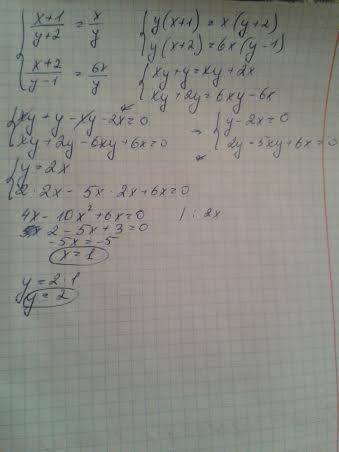 { (x+1)/(y+2) = x/y
{ (x+2)/(y-1) = 6x/y
{ y(x+1) = x(y+2)
{ y(x+2) = 6x(y-1)
{ xy+y = xy+2x
{ xy+2y = 6xy-6x
{ xy+y-xy-2x=0
{ xy+2y-6xy+6x=0
→ { y-2x=0
{ 2y-5xy+6x=0
{ y=2x
{ 2·2x-5x·2x+6x=0
4x-10x²+6x=0 /:2x
2-5x+3=0
-5x=-5
x=1
y=2·1
y=2